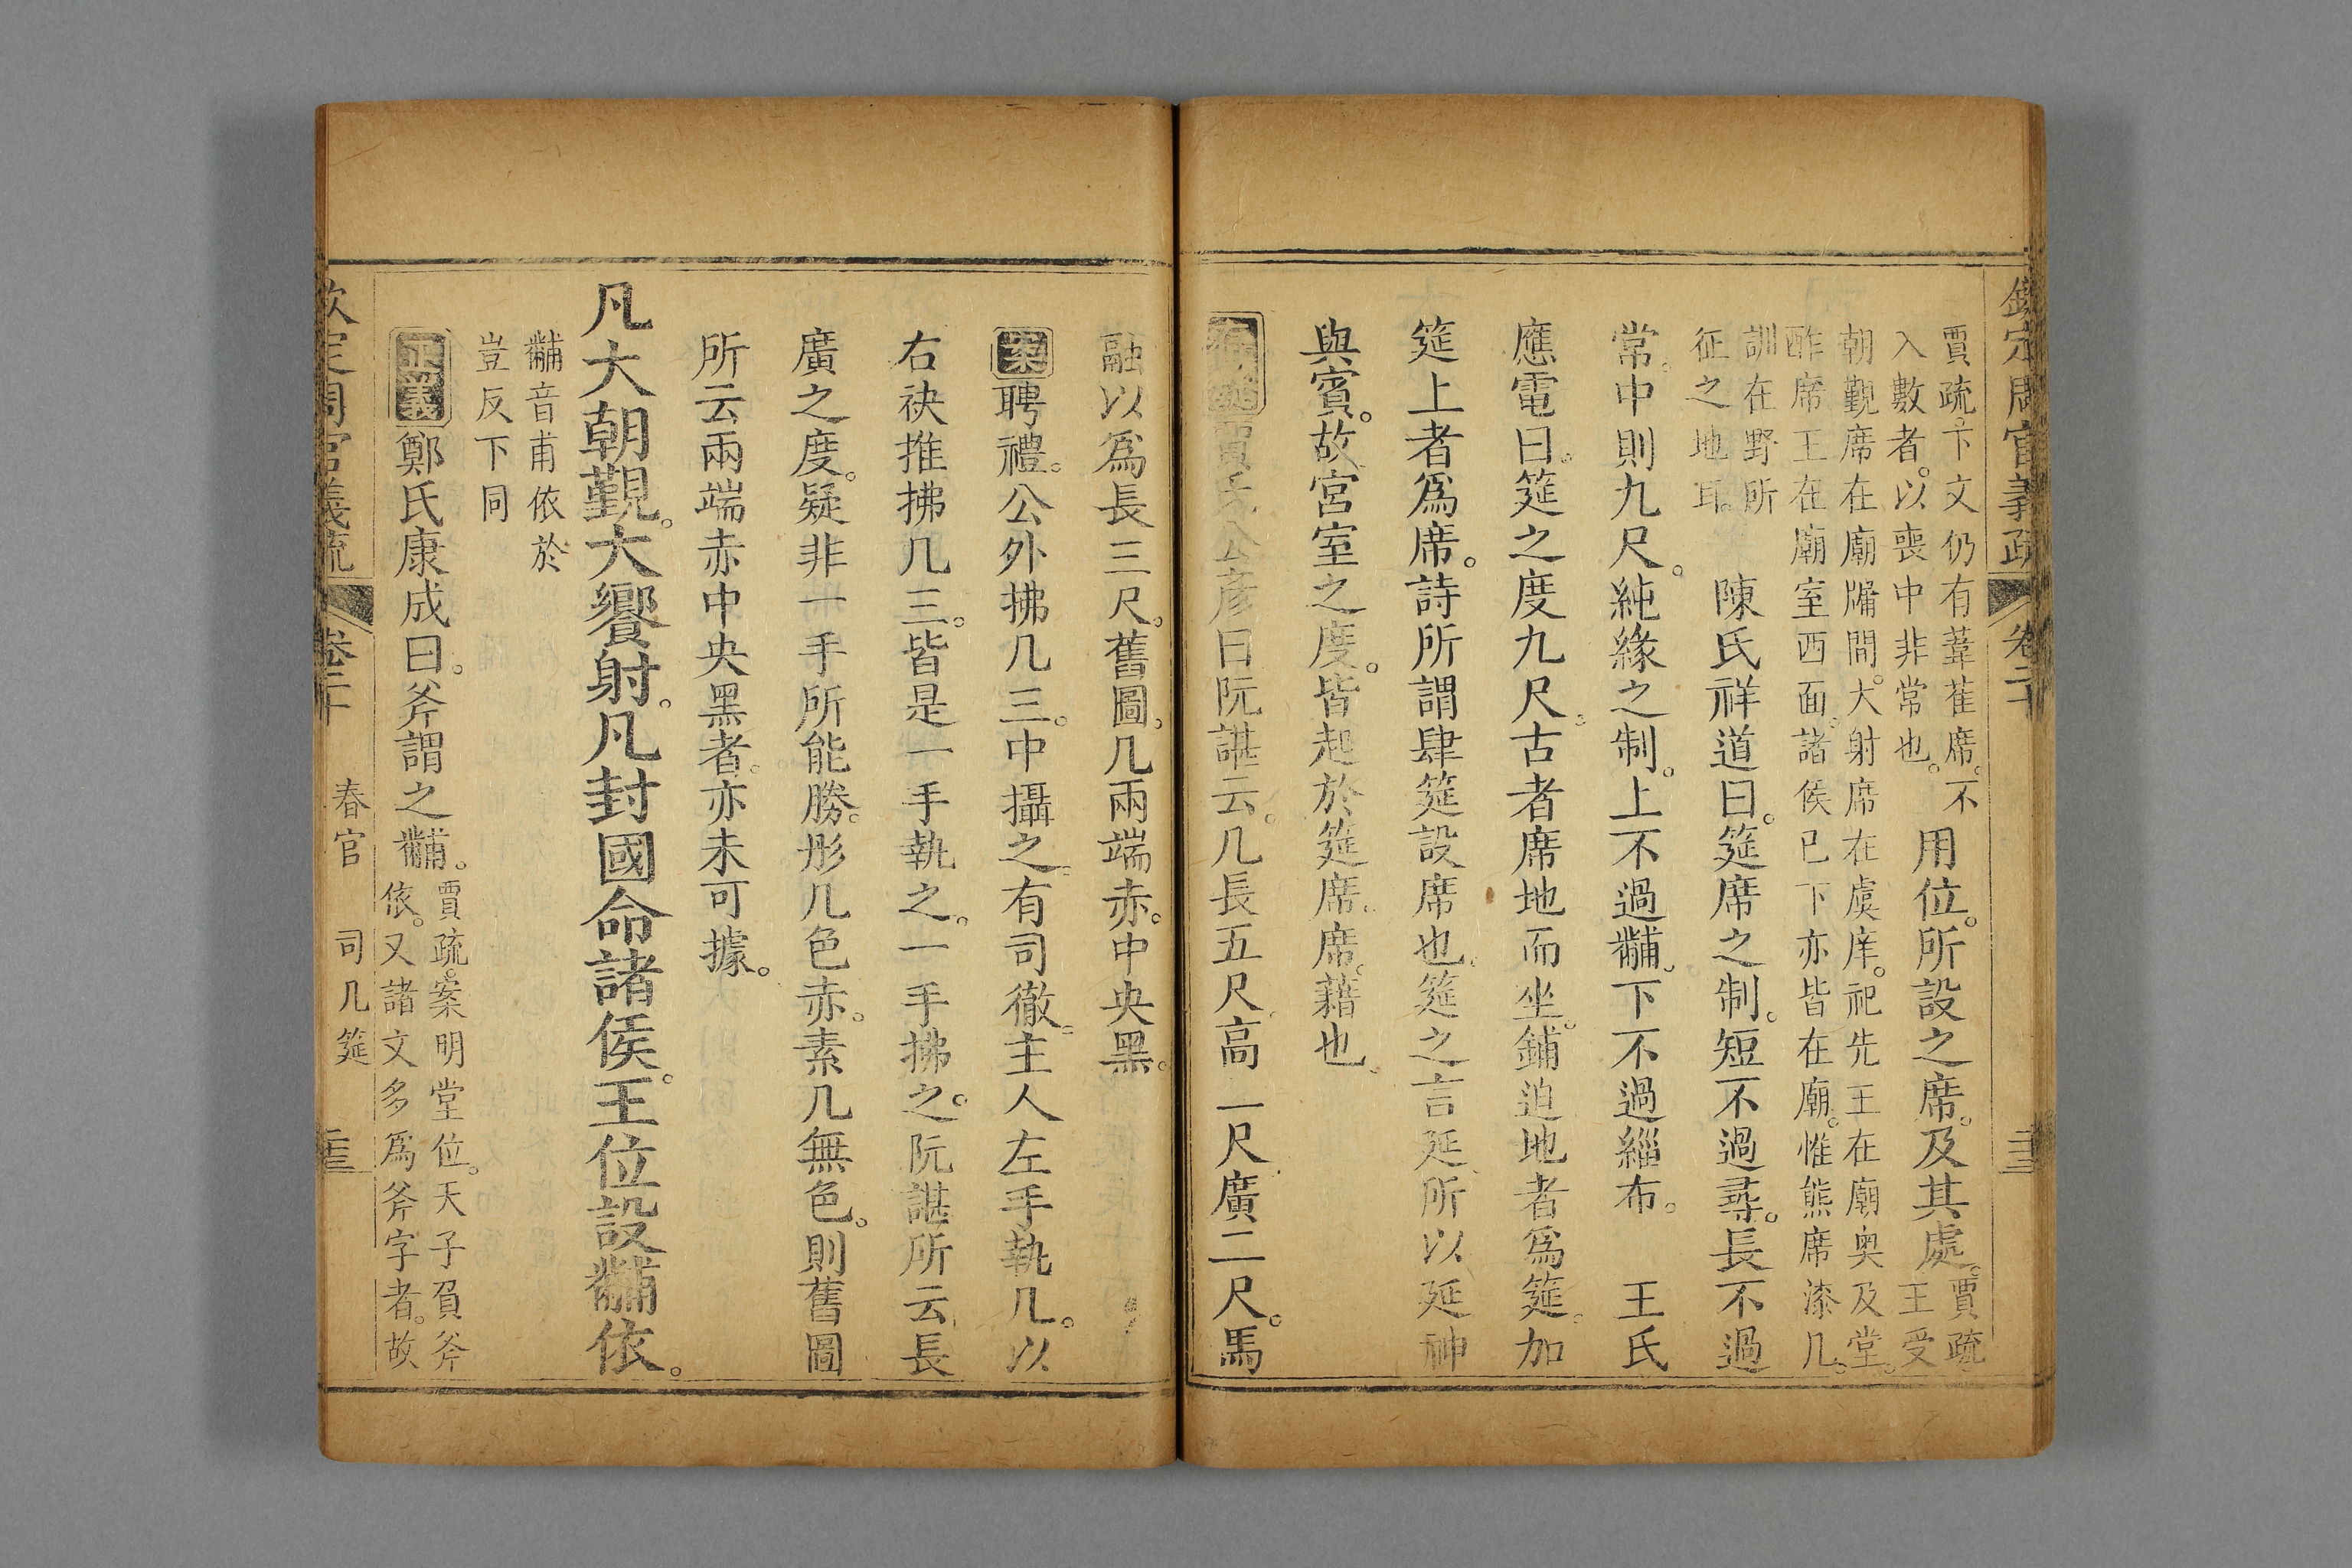 欽定周官義疏 卷二十
賈疏。下文仍有葦萑席。不
入數者。以喪中非常也。
用位。所設之席。及其處。
賈疏。
王受
朝覲席在廟牖間。大射席在虞庠。祀先王在廟奧及堂。
酢席王在廟室西面。諸侯已下亦皆在廟。惟熊席漆几。
訓在野所
征之地耳。
陳氏祥道曰。筵席之制。短不過尋。長不過
常。中則九尺。純緣之制。上不過黼。下不過緇布。 王氏
應電曰。筵之度九尺。古者席地而坐。鋪迫地者爲筵。加
筵上者爲席。詩所謂肆筵設席也。筵之言延。所以延神
與賓。故宮室之度。皆起於筵席。席。藉也。
存疑賈氏公彦曰阮諶云。几長五尺。高一尺廣二尺。馬
融以爲長三尺。舊圖。几兩端赤。中央黑。
案聘禮。公外拂几三。中攝之。有司徹。主人左手執几。以
右袂推拂几三。皆是一手執之。一手拂之。阮諶所云長
廣之度。疑非一手所能勝。彤几色赤。素几無色。則舊圖
所云兩端赤中央黑者。亦未可據。
凡大朝覲。大饗射。凡封國命諸侯。王位設黼依。
黼音甫依於
豈反下同
正義鄭氏康成曰。斧謂之黼。
賈疏。案明堂位。天子負斧
依。又諸文多爲斧字者。故
卷二十 春官 司几筵